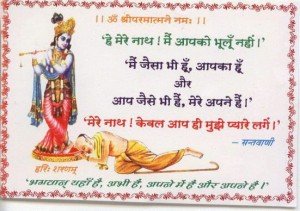 ।। ॐ श्रीपरमात्मने नमः ।।
'हे मेरे नाथ ! मैं आपको भूलूँ नहीं !'
'मैं जैसा भी हूँ, आपका हूँ
और
आप जैसे भी हैं, मेरे अपने हैं !'
'मेरे नाथ ! केवल आप ही मुझे प्यारे लगें !'
– सन्तवाणी
हरिः शरणम्
'भगवान् यहाँ हैं, अभी हैं, अपने में हैं और अपने हैं !'